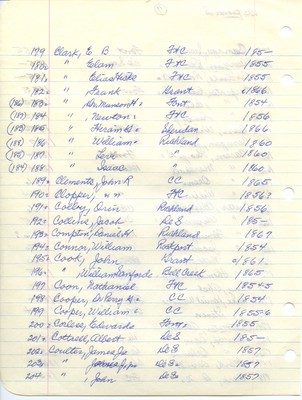 179 Clark, E B F+C 185-
180. " Elam F+C 1855
181. " F+C 1855.
182. " Frank Grant c1866
(186) 183. " Dr. Munson H. Font 1854
(187) 184 " Newton F+C 1856
(185) 185 " Hiram H. Sheridan 1866
(188) 186 " William Richland 1860
(185) 187 " Levi " 1860
(184) 188 " Isaac " 1860.
189. Clements, John R CC. 1865
190. Clopper, " " F+C 1856?
191. Colby, Orin Richland 1856
192. Collins, Jacob DeS 185-
193. Compton, H Richland 1867
194. Connor, William Rockport 1854
195. Cook, John, Grant c/1861
196. " William Bell Creek 1865
197. Coon, Nathaniel F+C 1854-5
198. Cooper, Dr. H. CC. 1854
199. Cooper, William C. F+C. 1855-6
200. Edwards 1855
201. Cottrell, Albert DeS 185-
202. Coulter, James Jr DeS 1857
203. " DeS. 1857
204. " John DeS 1857